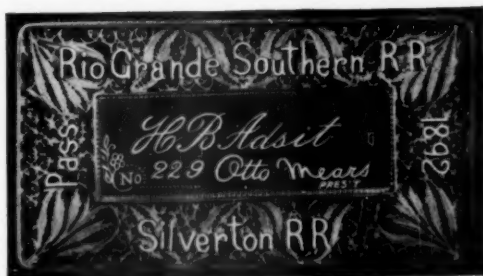 Rio Grande Southern R R
Pass
H B Adsit
No 229 Otto Mears
PRES'T
1892
Silverton R R